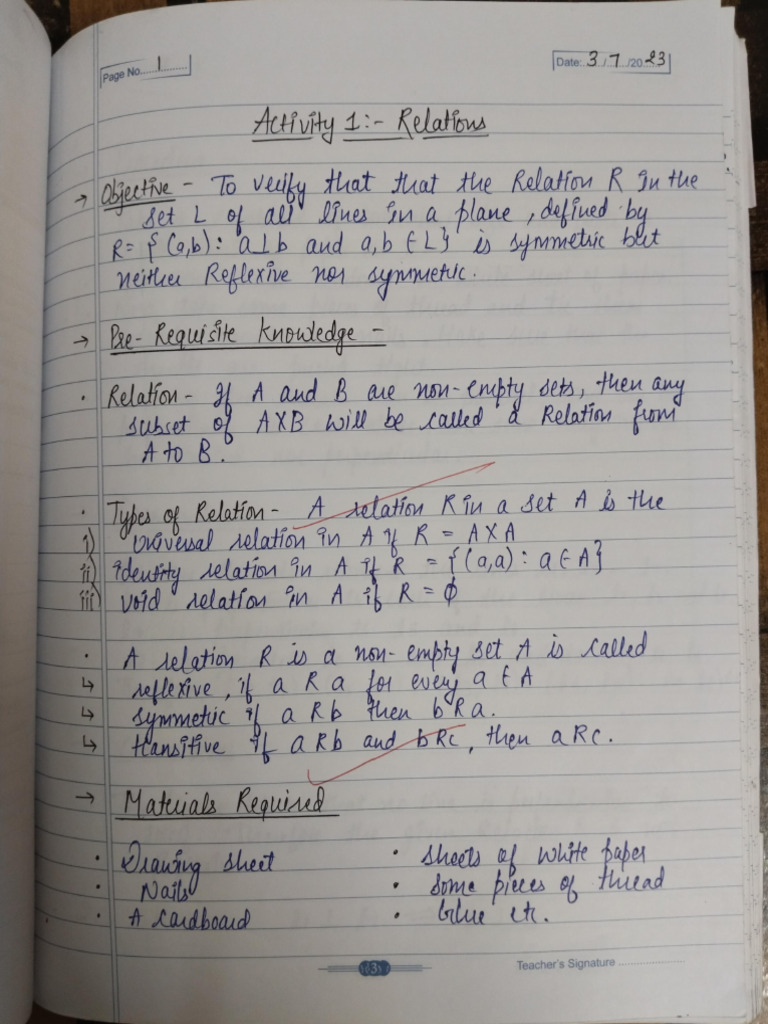 Page No. 1
Date: 3/7/2023
Activity 1:- Relations
→ Objective - To verify that that the Relation R in the
set L of all lines in a plane, defined by
R= {(a,b): a⊥b and a,b ∈ L} is symmetric but
neither Reflexive nor symmetric.
→ Pre-Requisite Knowledge -
· Relation - If A and B are non-empty sets, then any
subset of AXB will be called a Relation from
A to B.
· Types of Relation - A relation R in a set A is the
i) Universal relation in A if R = AXA
ii) identity relation in A if R = {(a,a): a ∈ A}
iii) void relation in A if R = ϕ
· A relation R is a non-empty set A is called
↳ reflexive, if a R a for every a ∈ A
↳ symmetric if a R b then b R a.
↳ transitive if a R b and b R c, then a R c.
→ Materials Required
· Drawing sheet · sheets of white paper
· Nails · some pieces of thread
· A cardboard · Glue etc.
3
Teacher's Signature